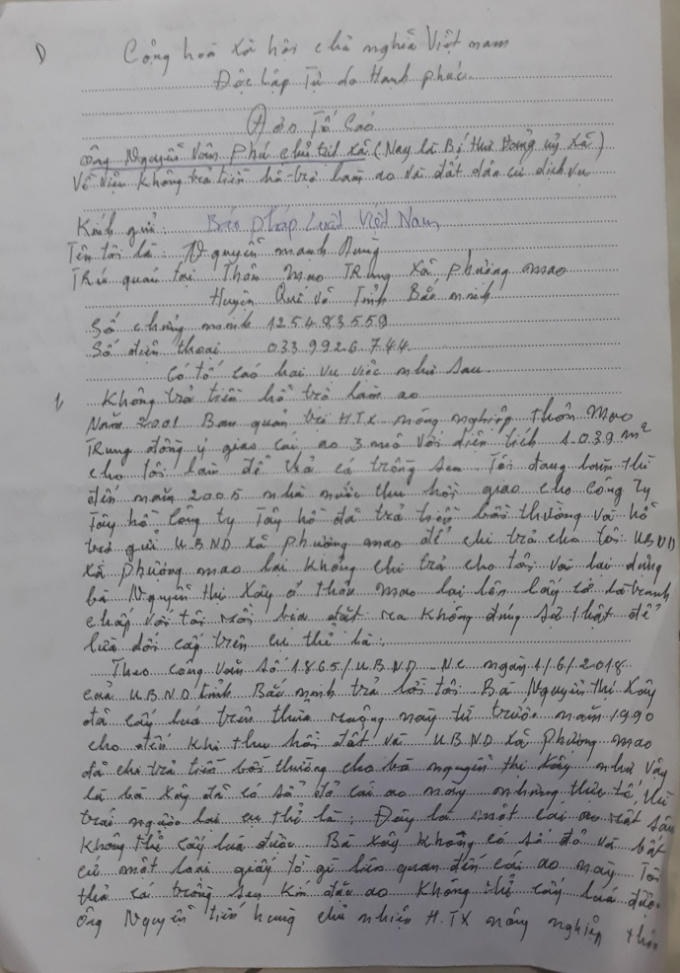 Cộng hoà xã hội chủ nghĩa Việt nam
Độc lập Tự do Hạnh phúc
Đơn Tố Cáo
Ông Nguyễn Văn Phú chủ tịch xã (Nay là Bí thư Đảng uỷ xã)
Về việc không trả tiền hỗ trợ làm ao và đất dân cư dịch vụ
Kính gửi: Báo pháp luật Việt Nam
Tên tôi là: Nguyễn mạnh Dũng
Trú quán tại Thôn Mao Trung xã phượng mao
Huyện Quế võ Tỉnh Bắc ninh
Số chứng minh 125483559
Số điện thoại 033.992.6.744
Có tố cáo hai vụ việc như sau
1 Không trả tiền hỗ trợ làm ao
Năm 2001 Ban quản trị H.TX nông nghiệp thôn Mao
Trung đồng ý giao cái ao 3 mẫu với diện tích 1.039 m²
cho tôi làm để thả cá trồng sen Tôi đang làm thì
đến năm 2005 nhà nước thu hồi giao cho Công ty
Tây hồ Công ty Tây hồ đã trả tiền bồi thường và hỗ
trợ gửi U.B.ND xã phượng mao để chi trả cho tôi U.B.ND
xã phượng mao lại không chi trả cho tôi và lại dựng
bà Nguyễn thị Xây ở thôn mao lại lên lấy cớ là tranh
chấp với tôi rồi bịa đặt ra không đúng sự thật để
lừa dối cấp trên cụ thể là:
Theo công văn số 1865/U.B.ND-N.C ngày 1/6/2018
của U.B.ND tỉnh Bắc ninh trả lời tôi Bà Nguyễn thị Xây
đã cấy lúa trên thửa ruộng này từ trước năm 1990
cho đến khi thu hồi đất và U.B.ND xã phượng mao
đã chi trả tiền bồi thường cho bà nguyễn thị Xây như vậy
là bà Xây đã có sổ đỏ cái ao này nhưng thực tế thì
trái ngược lại cụ thể là: Đây là một cái ao rất sâu
không thể cấy lúa được Bà Xây không có sổ đỏ và bất
cứ một loại giấy tờ gì liên quan đến cái ao này Tôi
thả cá trồng sen kín đầu ao không thể cấy lúa được
Ông Nguyễn tiến hưng chủ nhiệm H.TX nông nghiệp thôn